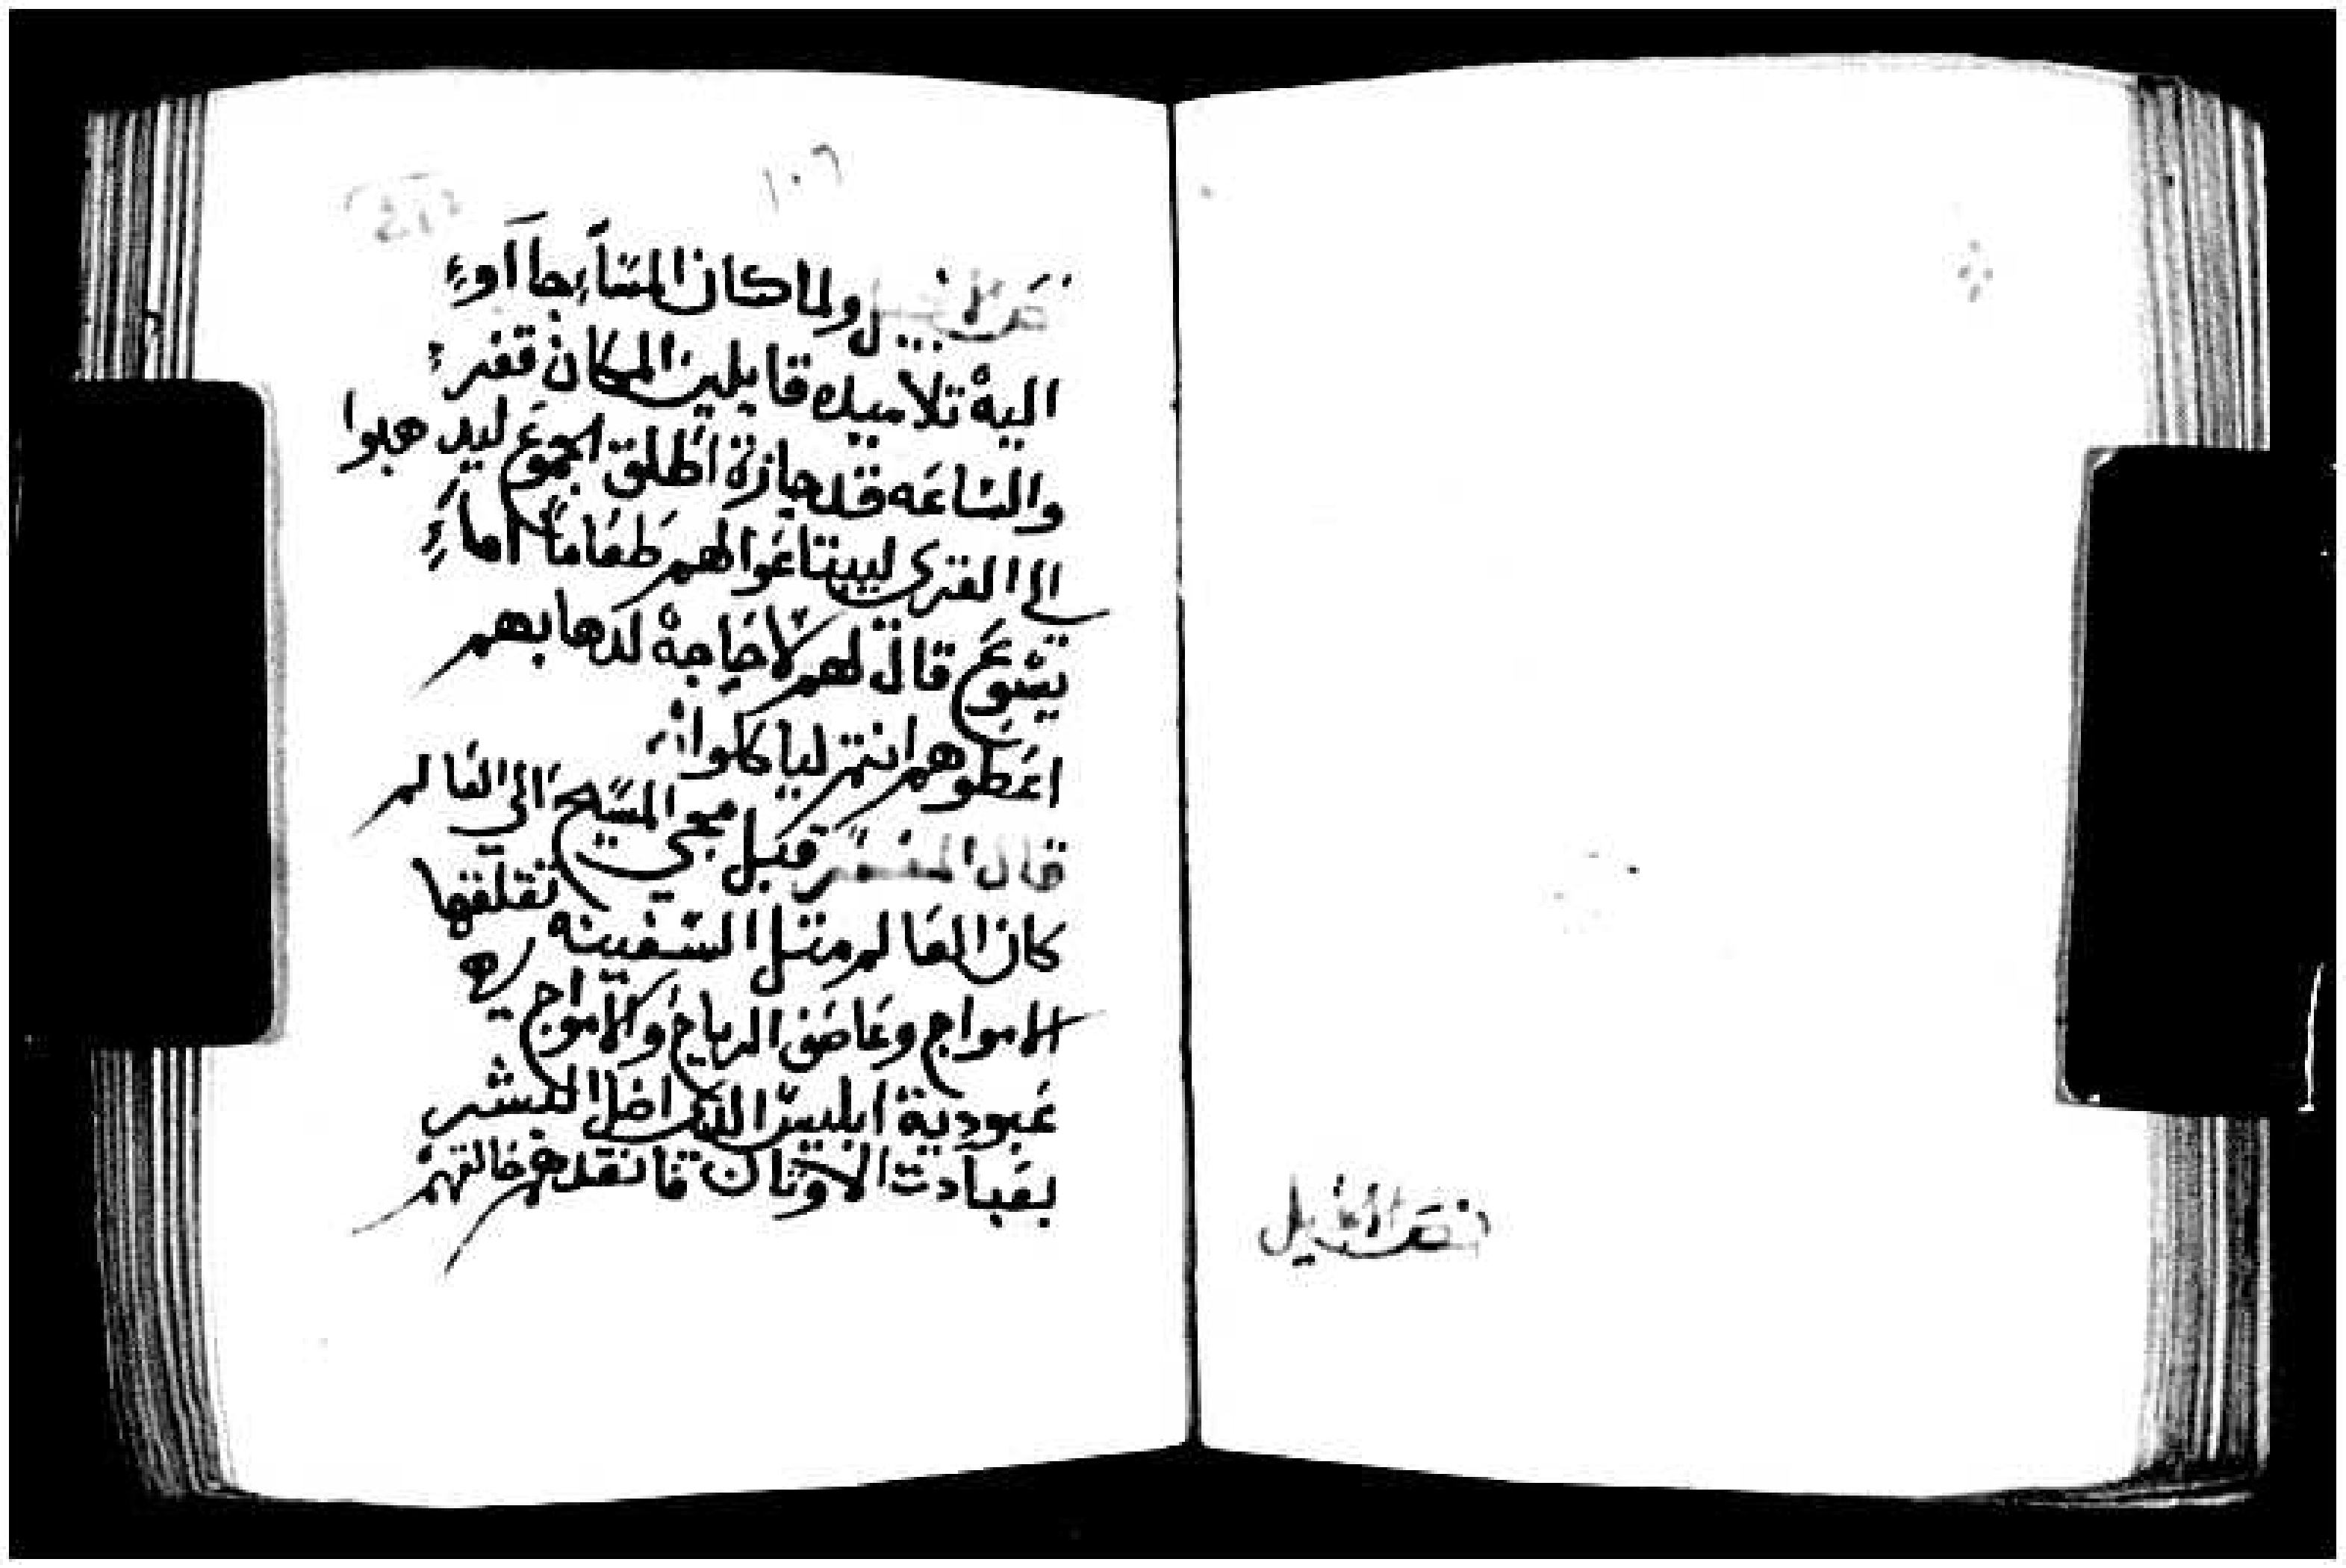 نص الانجيل
١٠٦
نص الانجيل ولما كان المسآء جآاوءِ
اليه تلاميده قايلين المكان قفر
والساعه قد جازة اطلق الجموع ليدهبوا
الى القرى ليبتاعوا لهم طعاماً اما
يسوع قال لهم لا حاجة لدهابهم
اعطوهم انتم لياكلوا
قال المفسر قبل مجي المسيح الي العالم
كان العالم متل السفينه تقلفها
الامواج وعاصف الرياح والامواج هي
عبودية ابليس الدي اضل البشر
بعبادت الاوثان فانقدهم خالقهم